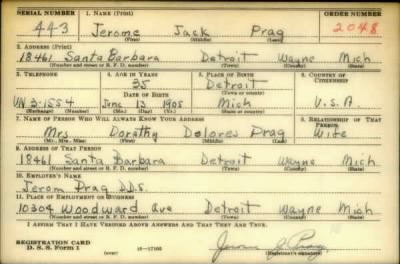 SERIAL NUMBER 1. NAME (Print) ORDER NUMBER
443 Jerome Jack Prag 2048
(First) (Middle) (Last)
2. ADDRESS (Print)
18461 Santa Barbara Detroit Wayne Mich
(Number and street or R. F. D. number) (Town) (County) (State)
3. TELEPHONE 4. AGE IN YEARS 5. PLACE OF BIRTH 6. COUNTRY OF CITIZENSHIP
35 Detroit
DATE OF BIRTH (Town or county)
UN 2-1554 June 13 1905 Mich U.S.A
(Exchange) (Number) (Mo.) (Day) (Yr.) (State or country)
7. NAME OF PERSON WHO WILL ALWAYS KNOW YOUR ADDRESS 8. RELATIONSHIP OF THAT PERSON
Mrs Dorathy Dolores Prag Wife
(Mr., Mrs., Miss) (First) (Middle) (Last)
9. ADDRESS OF THAT PERSON
18461 Santa Barbara Detroit Wayne Mich
(Number and street or R. F. D. number) (Town) (County) (State)
10. EMPLOYER'S NAME
Jerom Prag D.D.S.
11. PLACE OF EMPLOYMENT OR BUSINESS
10304 Woodward ave Detroit Wayne Mich
(Number and street or R. F. D. number) (Town) (County) (State)
I AFFIRM THAT I HAVE VERIFIED ABOVE ANSWERS AND THAT THEY ARE TRUE.
REGISTRATION CARD
D. S. S. Form 1 (over) 16-17105 Jerome J. Prag
(Registrant's signature)